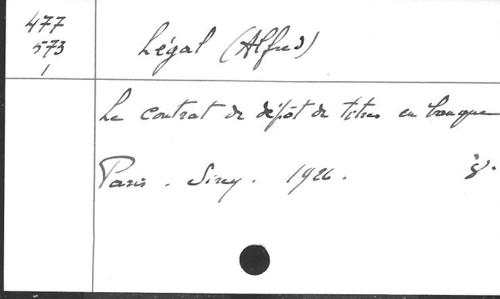 477
573
1
Légal (Alfred)
Le contrat de dépôt de titres en banque
Paris. Sirey. 1926. 8°.